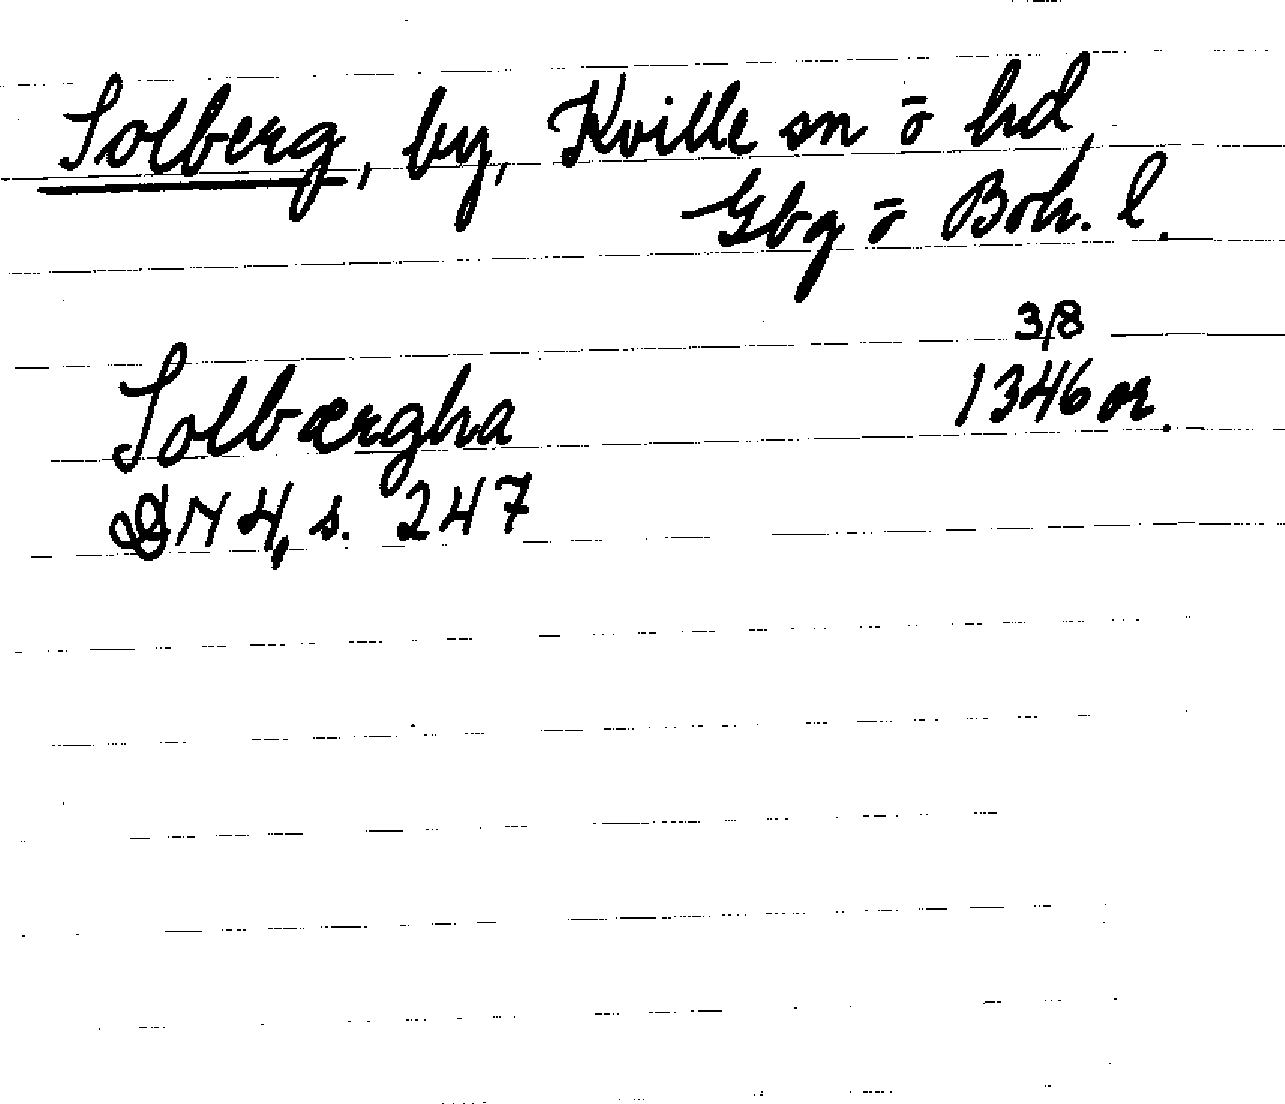 Solberg, by, Kville sn ō hd,
Gbg ō Boh. l.
3/8
Solbærgha 1346 or.
DN 4, s. 247